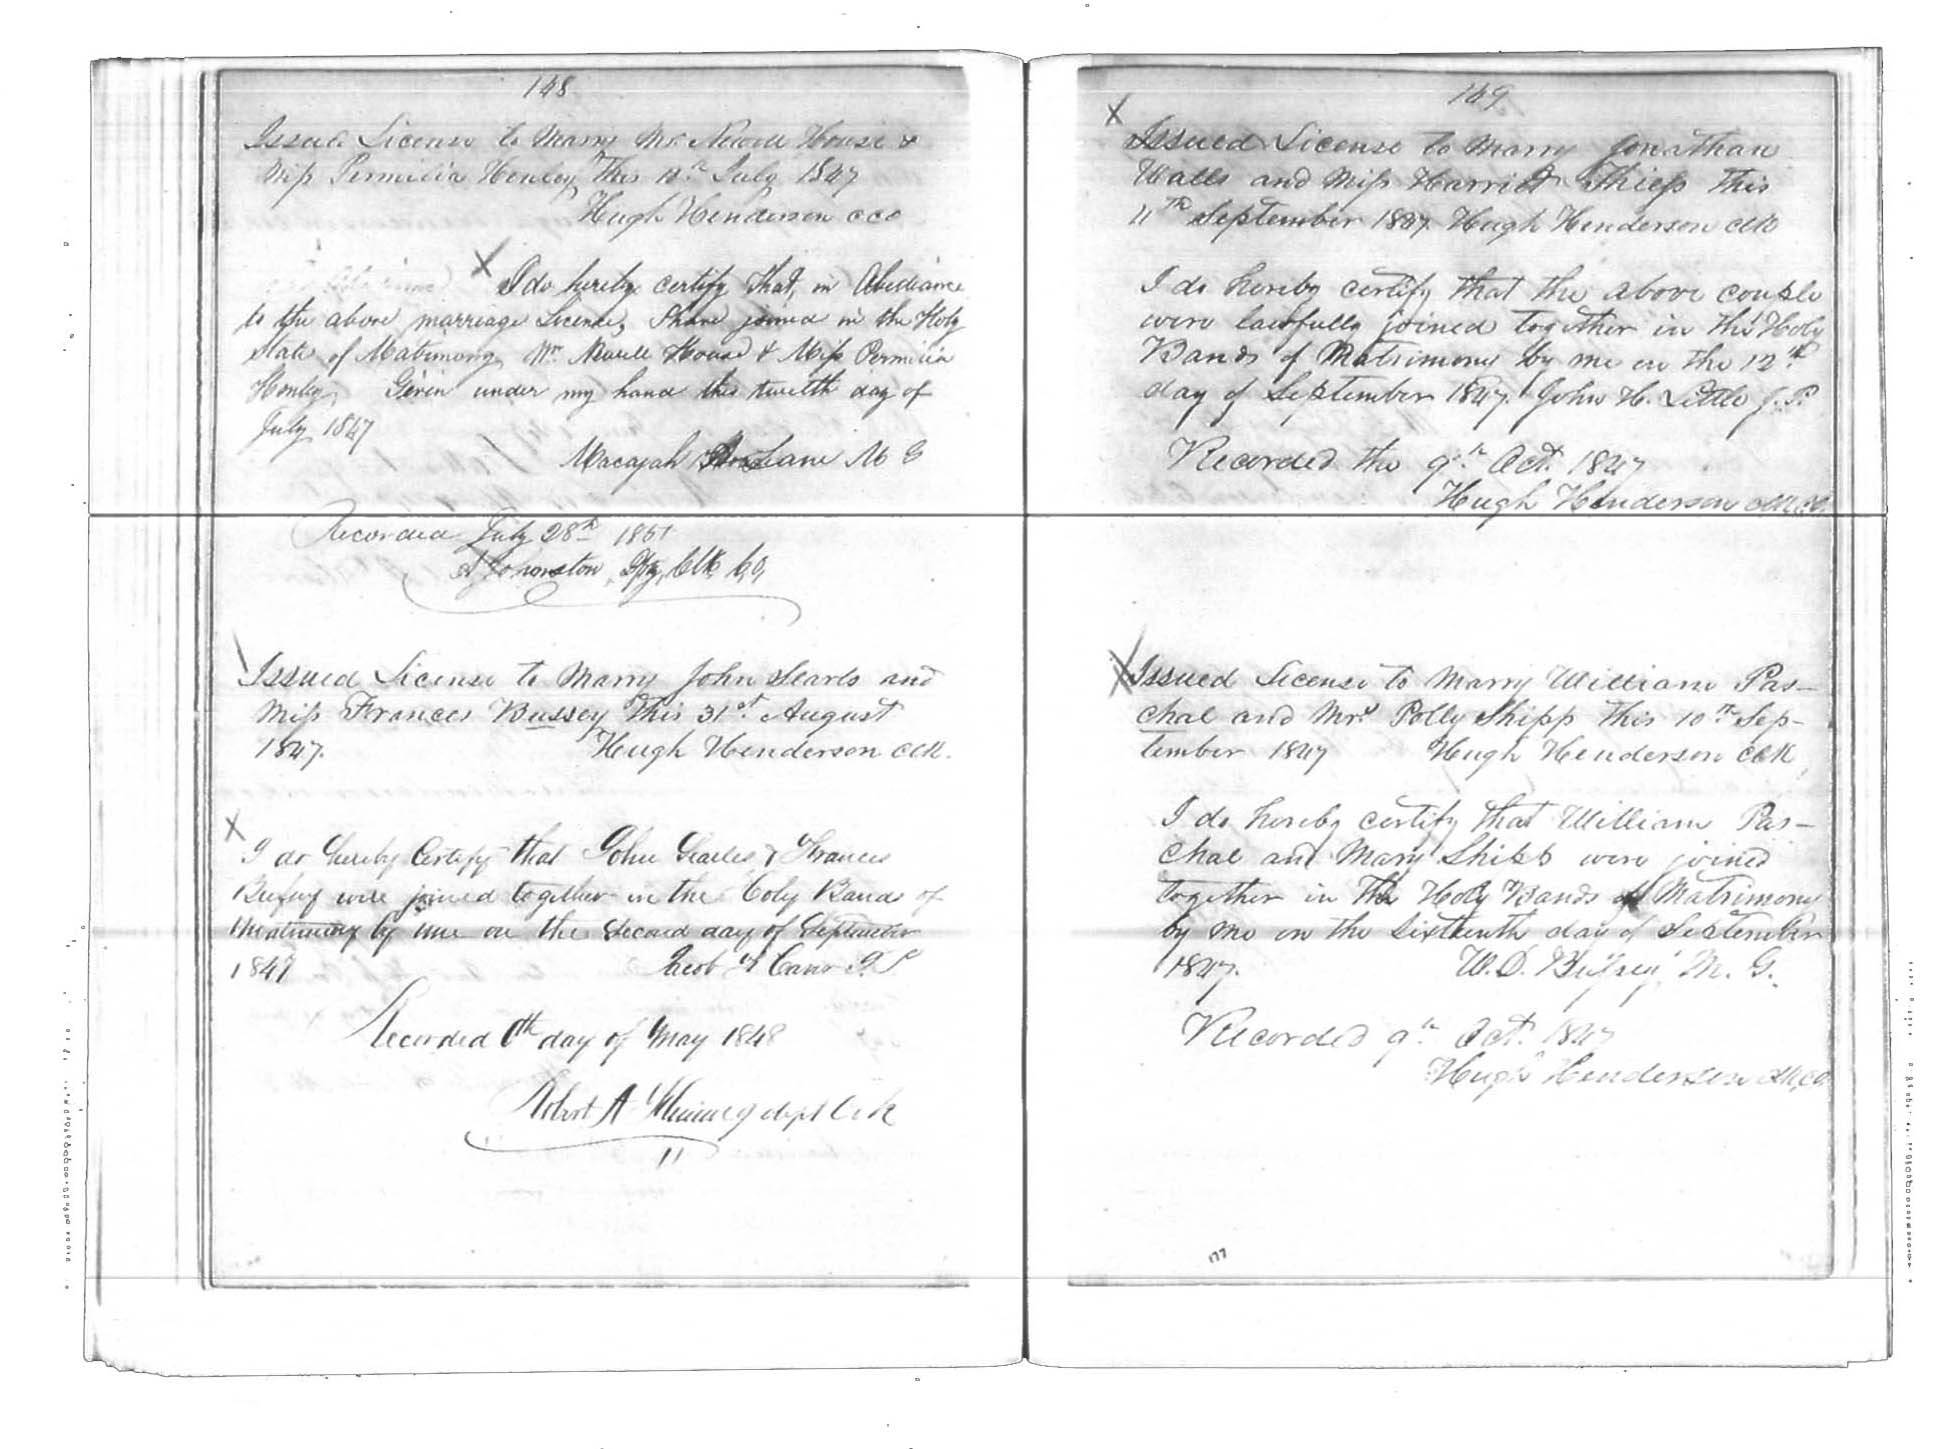 148
Issued License to Marry Mr. Newell House &
Miss Permilia Henley This 10th July 1847
Hugh Henderson CCO
X I do hereby certify that, in Abediance
to the above marriage License, I have joined in the Holy
state of Matimony, Mr. Newell House & Miss Permilia
Henley, Givin under my hand this twelth day of
July 1847
Macajah Lane M G
Recorded July 28th 1851
A Johnston, Dpy, Clk, C,O,
Issued License to Marry John Searls and
Miss Frances Bussey This 31st. August
1847. Hugh Henderson Clk.
X
I do hereby Certify that John Searles & Frances
Bussey were joined together in the Holy Bands of
Matrimony by me on the Second day of September
1847 Jacob Cano J. P
Recorded day of May 1848
Robert A dept Clk
149
X
Issued License to Marry Jonathan
Walls and Miss Harriet This
11th September 1847 Hugh Henderson Clk
I do hereby certify that the above couple
were lawfully joined together in the Holy
Bands of Matrimony by me on the 12th
day of September 1847. John H. Little J. P.
Recorded the 9th Oct. 1847
Hugh Henderson Clk CO.
X Issued License to Marry William Pas-
chal and Mrs Polly Shipp This 10th Sep-
tember 1847 Hugh Henderson Clk,
I do hereby certify that William Pas-
chal and Mary Shipp were joined
together in the Holy Bands of Matrimony
by me on the Sixteenth day of September
1847. W. D. M. G.
Recorded 9th Oct. 1847
Hugh Henderson Clk, CO.
177